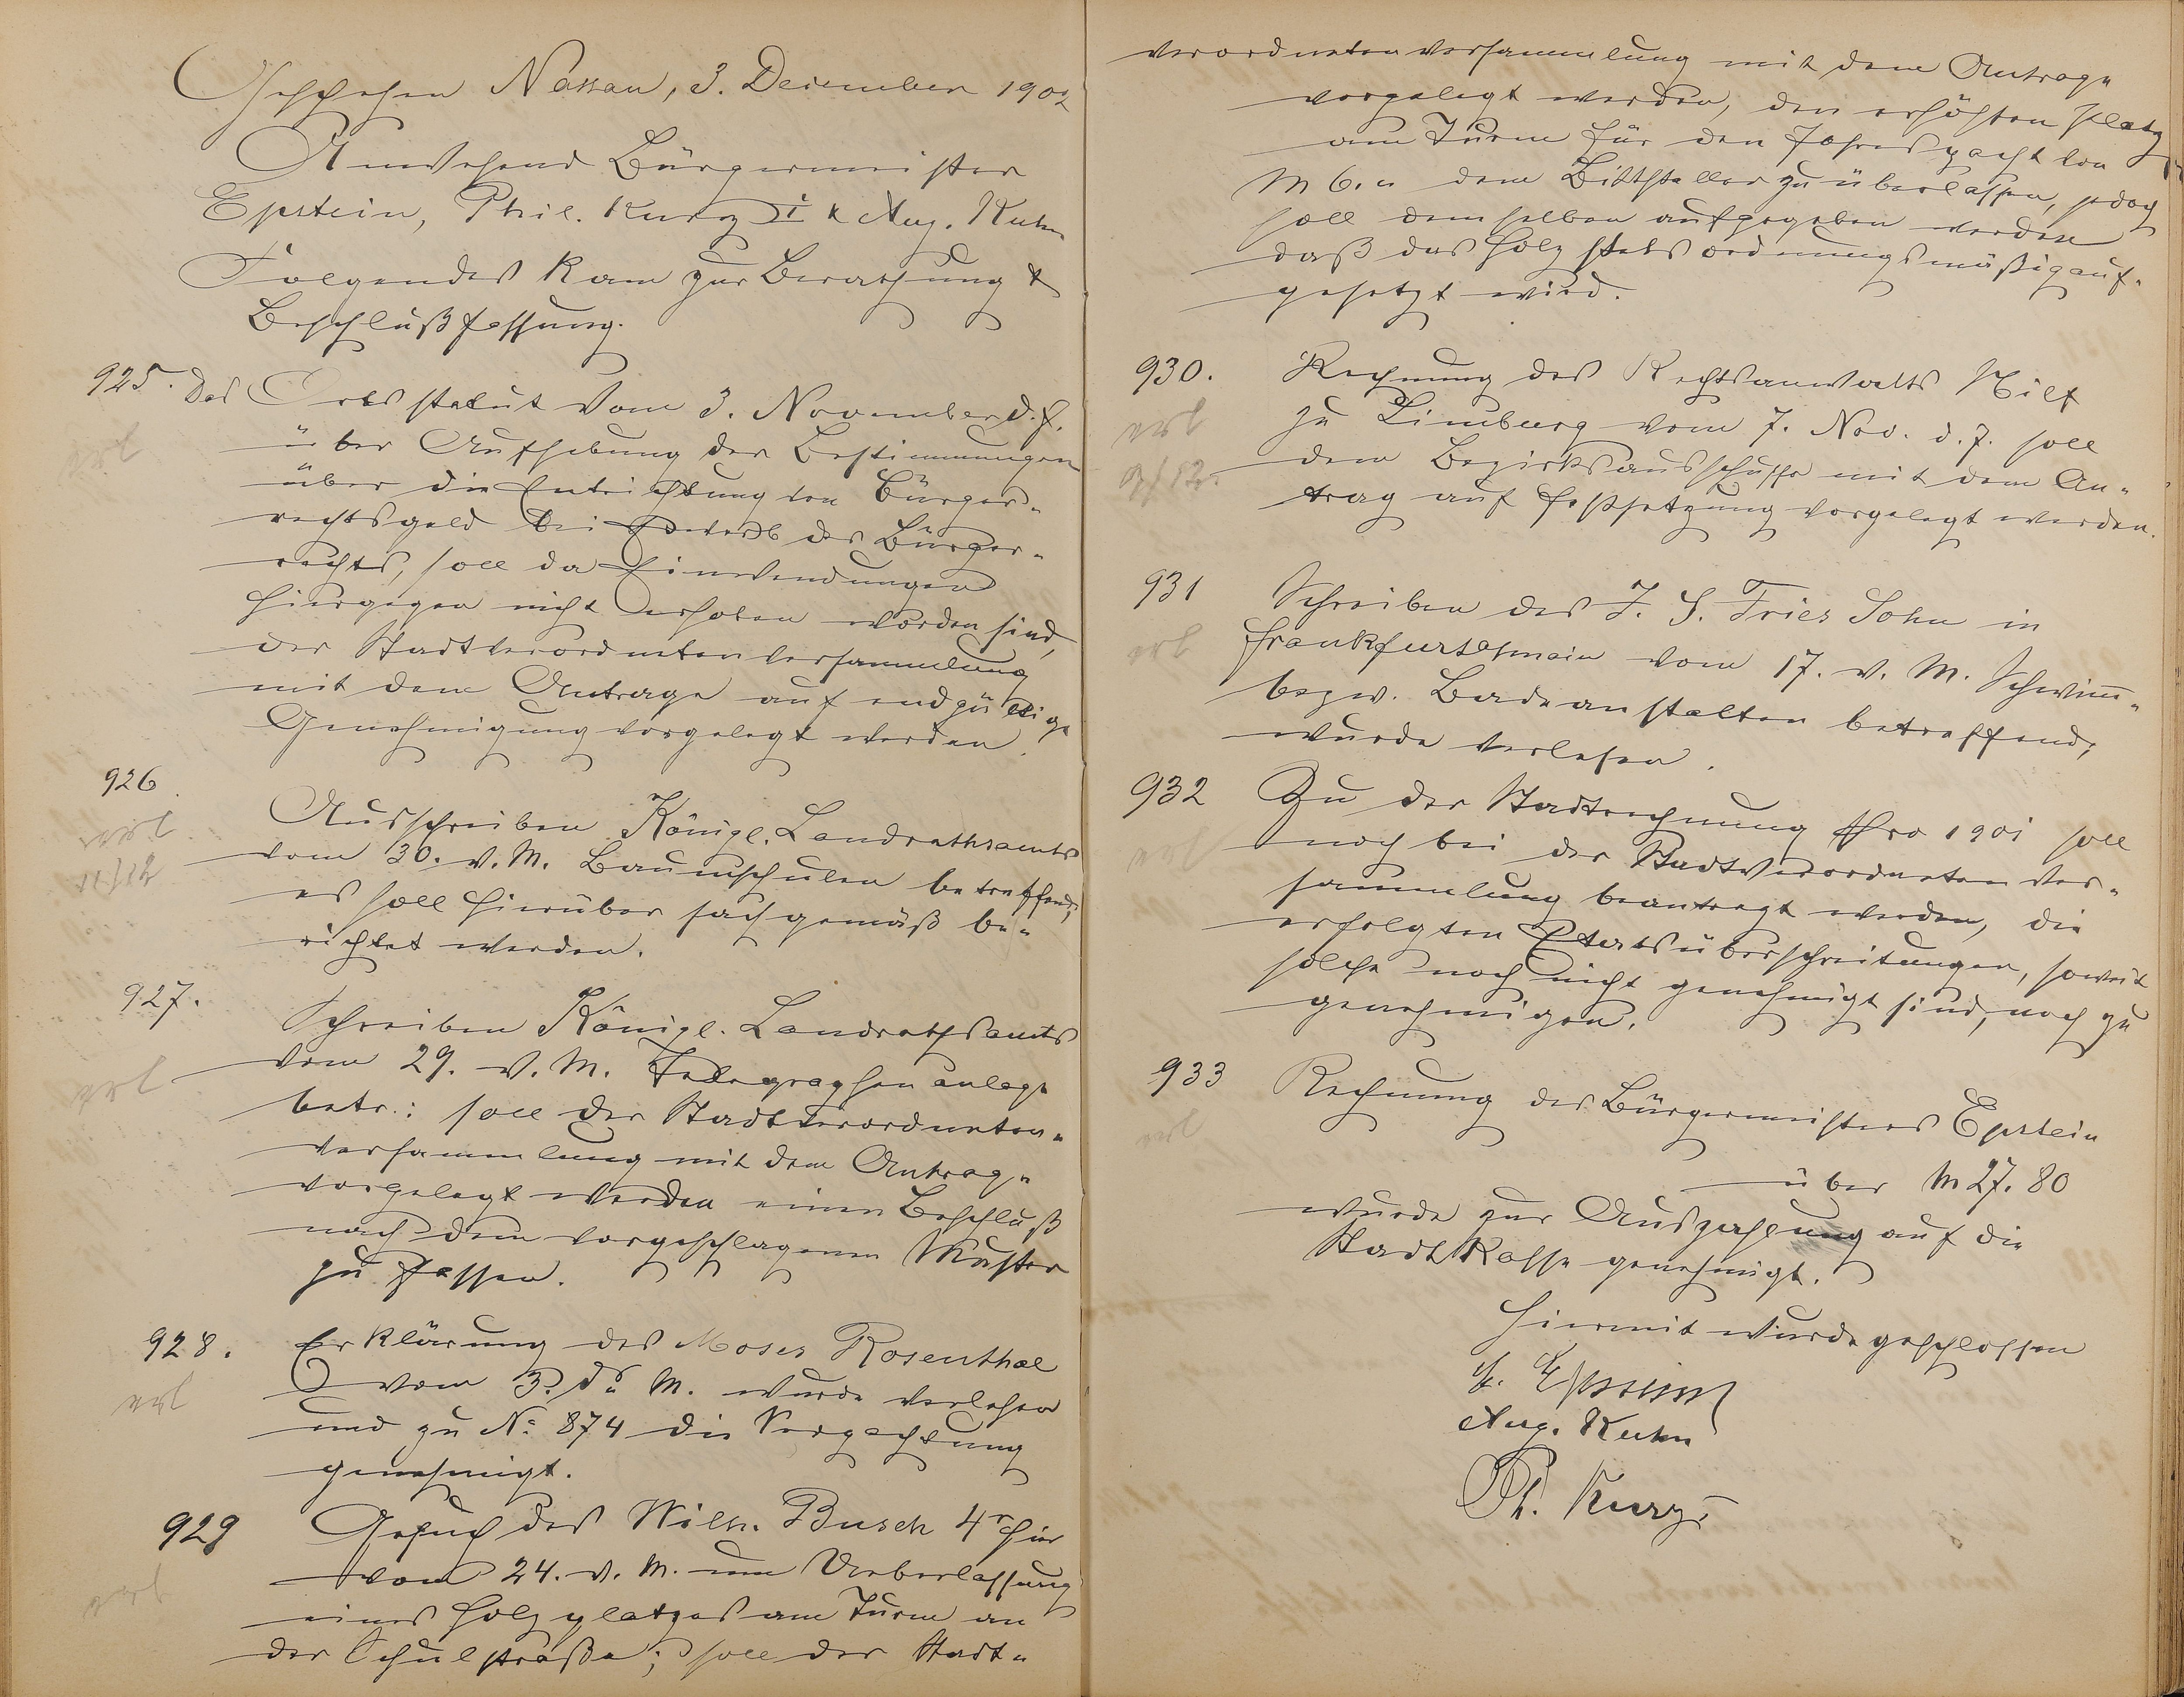 Geschehen Nassau, 3. Dezember 1902
Anwesend Bürgermeister
Epstein, Phil. Kurz I & Aug. Kuhn
Folgendes kam zur Berathung &
Beschlußfassung.
925. Das Ortsstatut vom 3. November d. J.
erl
über Aufhebung der Bestimmungen
über die Entrichtung von Bürger-
rechtsgeld bei Erwerb des Bürger-
rechts, soll da Einwendungen
hiergegen nicht erhoben worden sind,
der Stadtverordnetenversammlung
mit dem Antrage auf endgültige
Genehmigung vorgelegt werden.
926.
Ausschreiben Königl. Landrathsamts
erl
vom 30. v. M. Baumschulen betreffend;
11/12
es soll hierüber sachgemäß be-
richtet werden.
927.
Schreiben Königl. Landrathsamts
vom 29. v. M. Telegraphenanlage
erl
betr.: soll der Stadtverordneten-
versammlung mit dem Antrage
vorgelegt werden einen Beschluß
nach dem vorgeschlagenen Muster
zu fassen.
928. Erklärung des Moses Rosenthal
vom 3. ds. M. wurde verlesen
erl
und zu No. 874 die Verpachtung
genehmigt.
929 Gesuch des Wilh. Busch 4r hier
vom 24. v. M. um Ueberlassung
erl
eines Holzplatzes am Turm an
der Schulstraße; soll der Stadt-
verordnetenversammlung mit dem Antrage
vorgelegt werden, den erhöhten Platz
am Turm für den Jahrespacht von
M 6.- dem Bittsteller zu überlassen, jedoch
soll demselben aufgegeben werden
daß das Holz stets ordnungsmäßig auf-
gesetzt wird.
930. Rechnung des Rechtsanwalts Hilf
erl
zu Limburg vom 7. Nov. d. J. soll
9/12.
dem Bezirksausschusse mit dem An-
trag auf Festsetzung vorgelegt werden.
931 Schreiben des J. S. Fries Sohn in
erl
Frankfurt a/main vom 17. v. M. Schwimm-
bezw. Badeanstalten betreffend;
wurde verlesen.
932 Zu der Stadtrechnung pro 1901 soll
erl
noch bei der Stadtverordneten Ver-
sammlung beantragt werden, die
erfolgten Etatsüberschreitungen, soweit
solche noch nicht genehmigt sind, noch zu
genehmigen.
933 Rechnung des Bürgermeisters Epstein
erl
über M 27.80
wurde zur Auszahlung auf die
Stadtkasse genehmigt.
Hiermit wurde geschlossen
Epstein
Aug. Kuhn
Ph. Kurz I